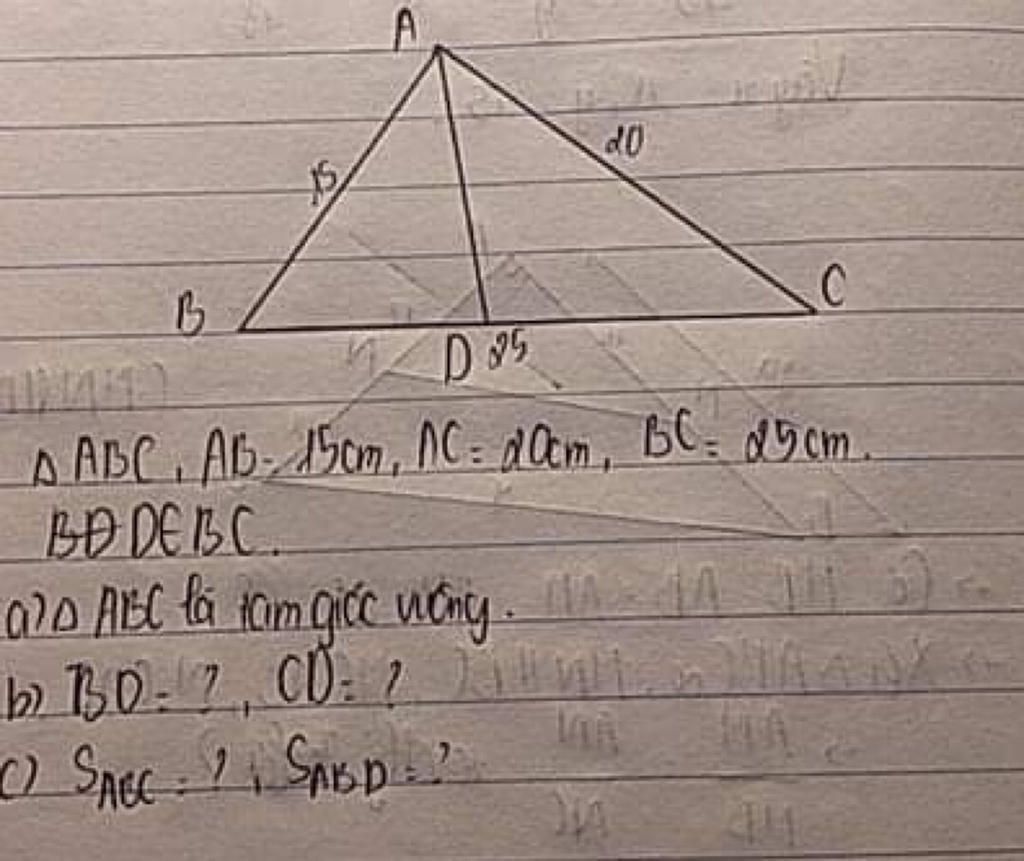 A
15
20
B
C
D 25
Δ ABC, AB = 15cm, AC = 20cm, BC = 25cm.
D∈BC.
a) Δ ABC là tam giác vuông.
b) BD = ?, CD = ?
c) SABC = ?, SABD = ?